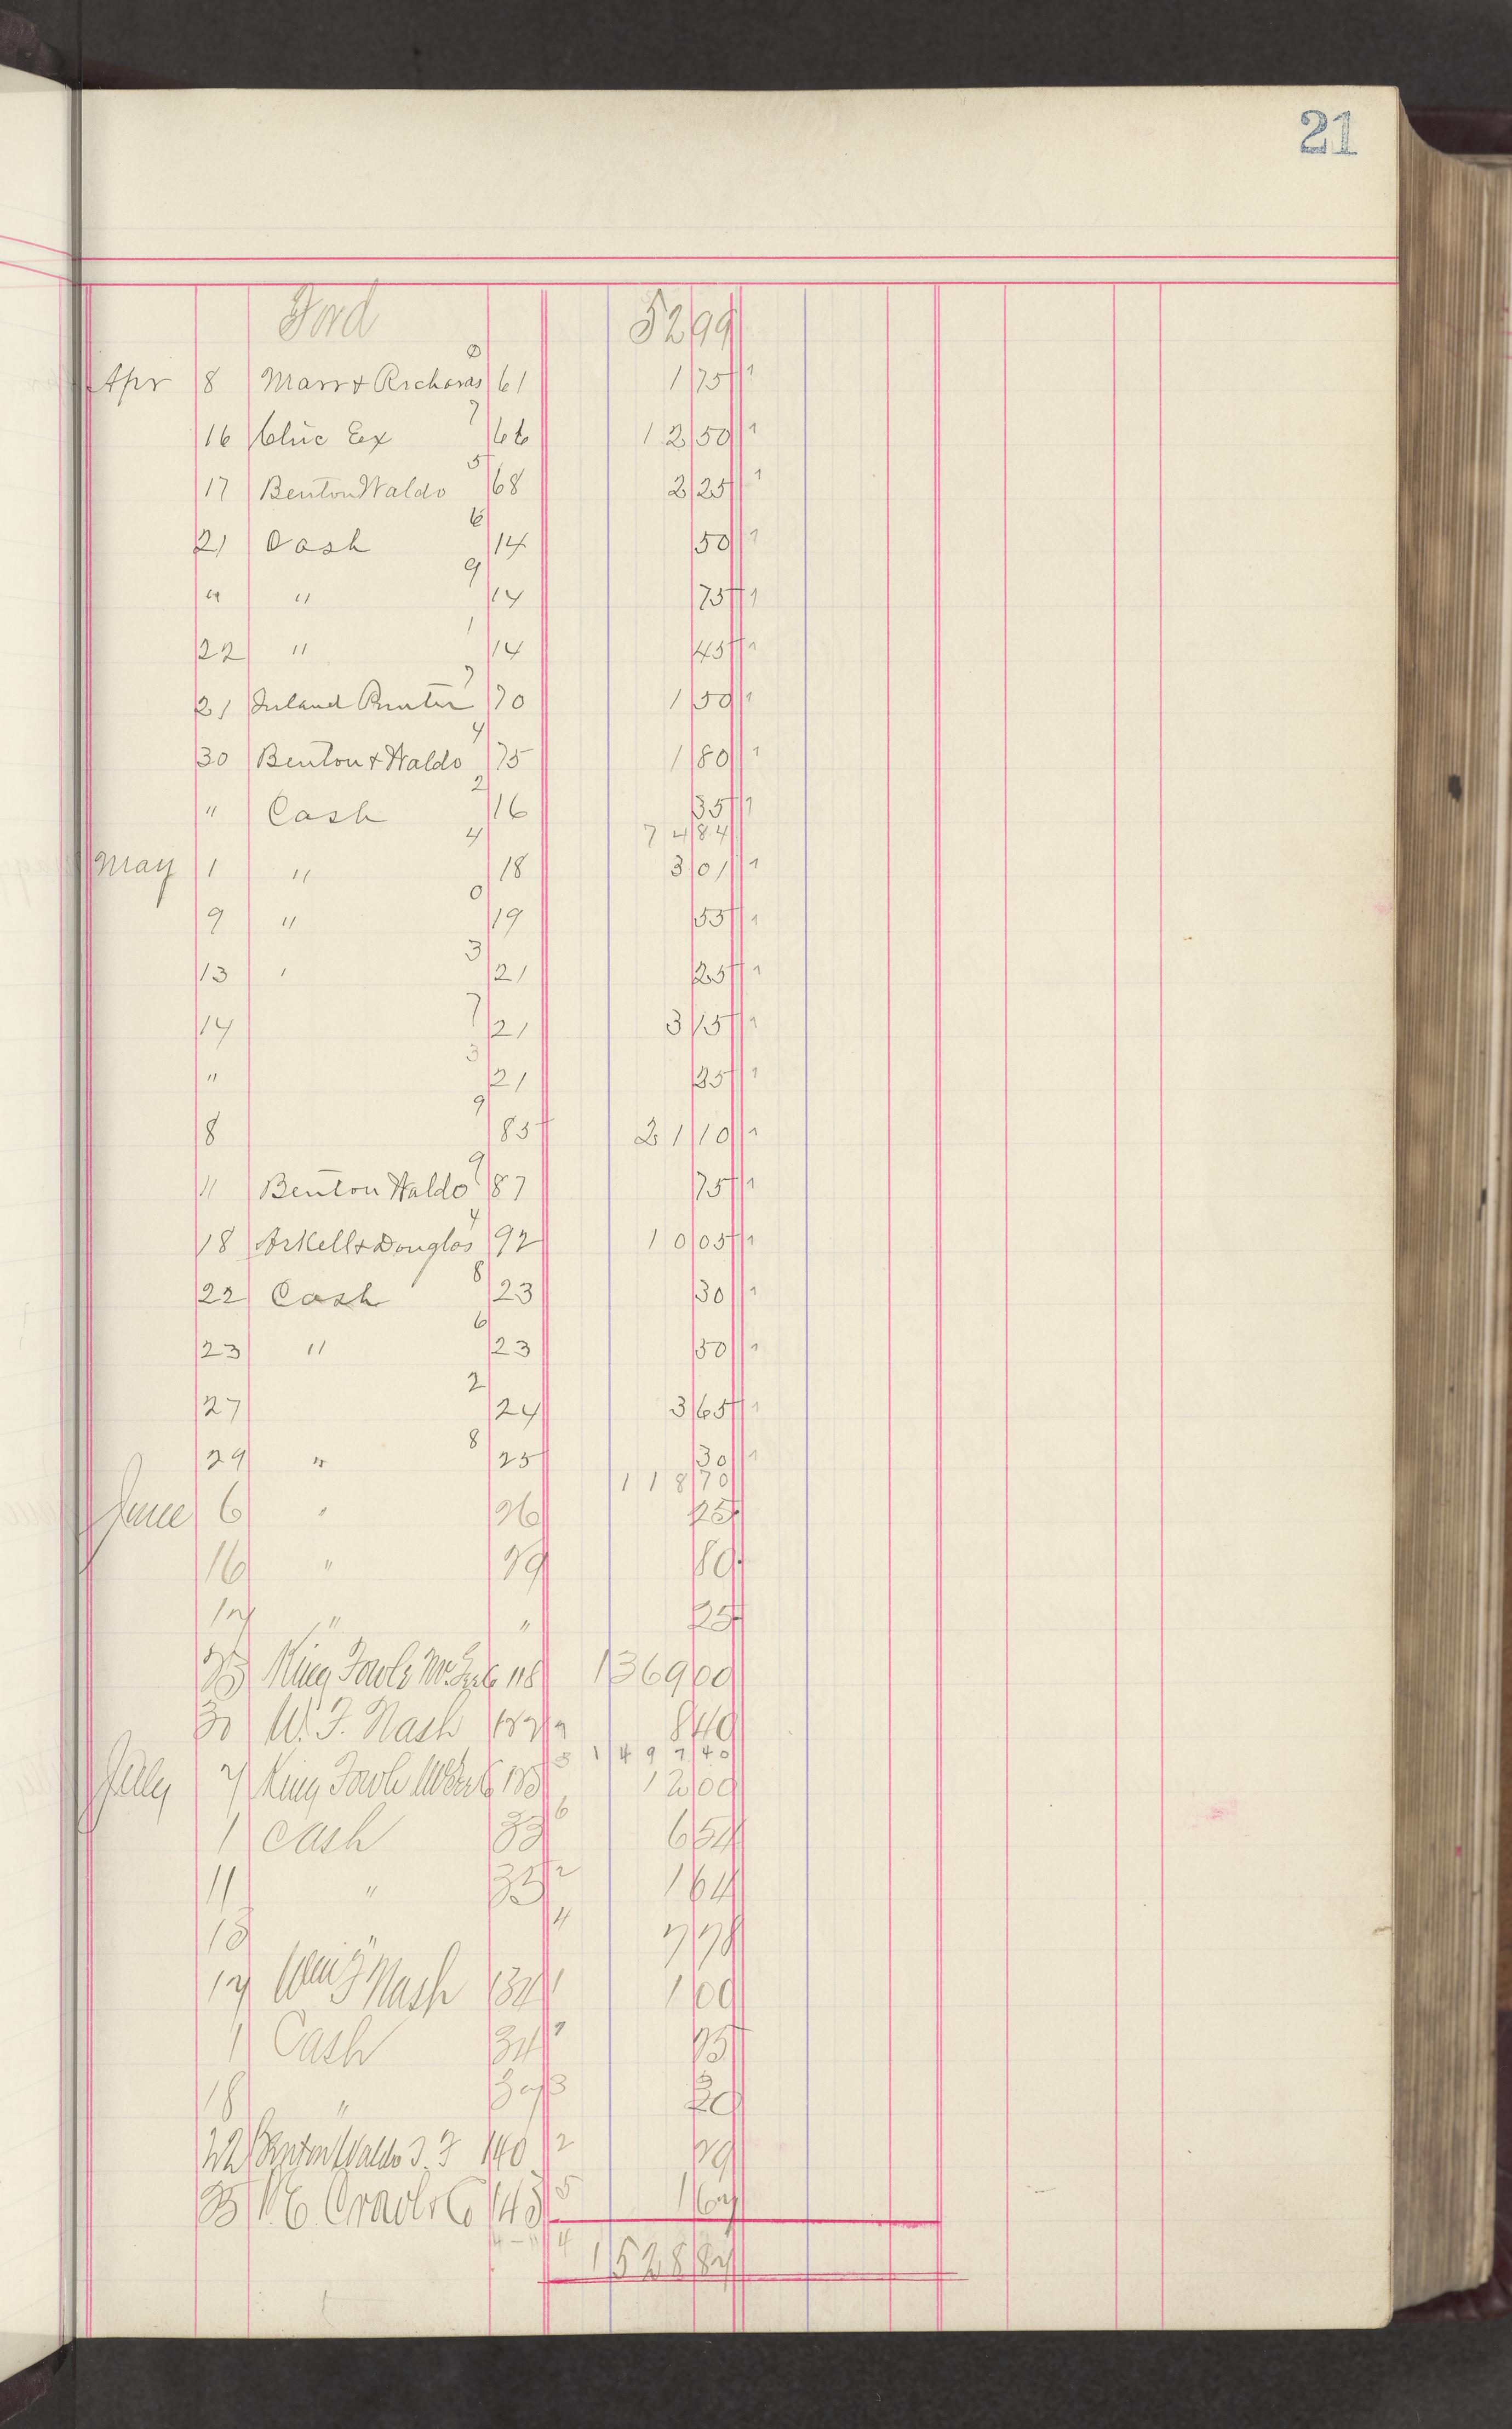 21
Ford 52 99
Apr 8 Marr & Richards 0 61 1 75 1
16 Chic Ex 7 66 12 50 1
17 Benton Waldo 5 68 2 25 1
21 Cash 6 14 50 1
" " 9 14 75 1
22 " 1 14 45 1
21 Inland Printer 7 70 1 50 1
30 Benton & Waldo 4 75 1 80 1
" Cash 2 16 35 1
74 84
May 1 " 4 18 3 01 1
9 " 0 19 55 1
13 ' 3 21 25 1
14 7 21 3 15 1
" 3 21 35 1
8 9 85 21 10 1
11 Benton Waldo 9 87 75 1
18 Arkell & Douglas 4 92 10 05 1
22 Cash 8 23 30 1
23 " 6 23 50 1
27 2 24 3 65 1
29 " 8 25 30 1
118 70
June 6 " 26 25
16 " 29 80
17 " " 25
25 King Fowle 118 1369 00
30 W. F. Nash 8 40
1497 40
July 7 King Fowle 3 12 00
1 Cash 33 6 6 54
11 " 35 2 1 64
15 " 4 7 78
17 Wm F Nash 134 1 1 00
1 Cash 34 7 25
18 " 37 3 20
22 Benton Waldo 140 2 29
25 Co 145 5 1 67
4 1528 87